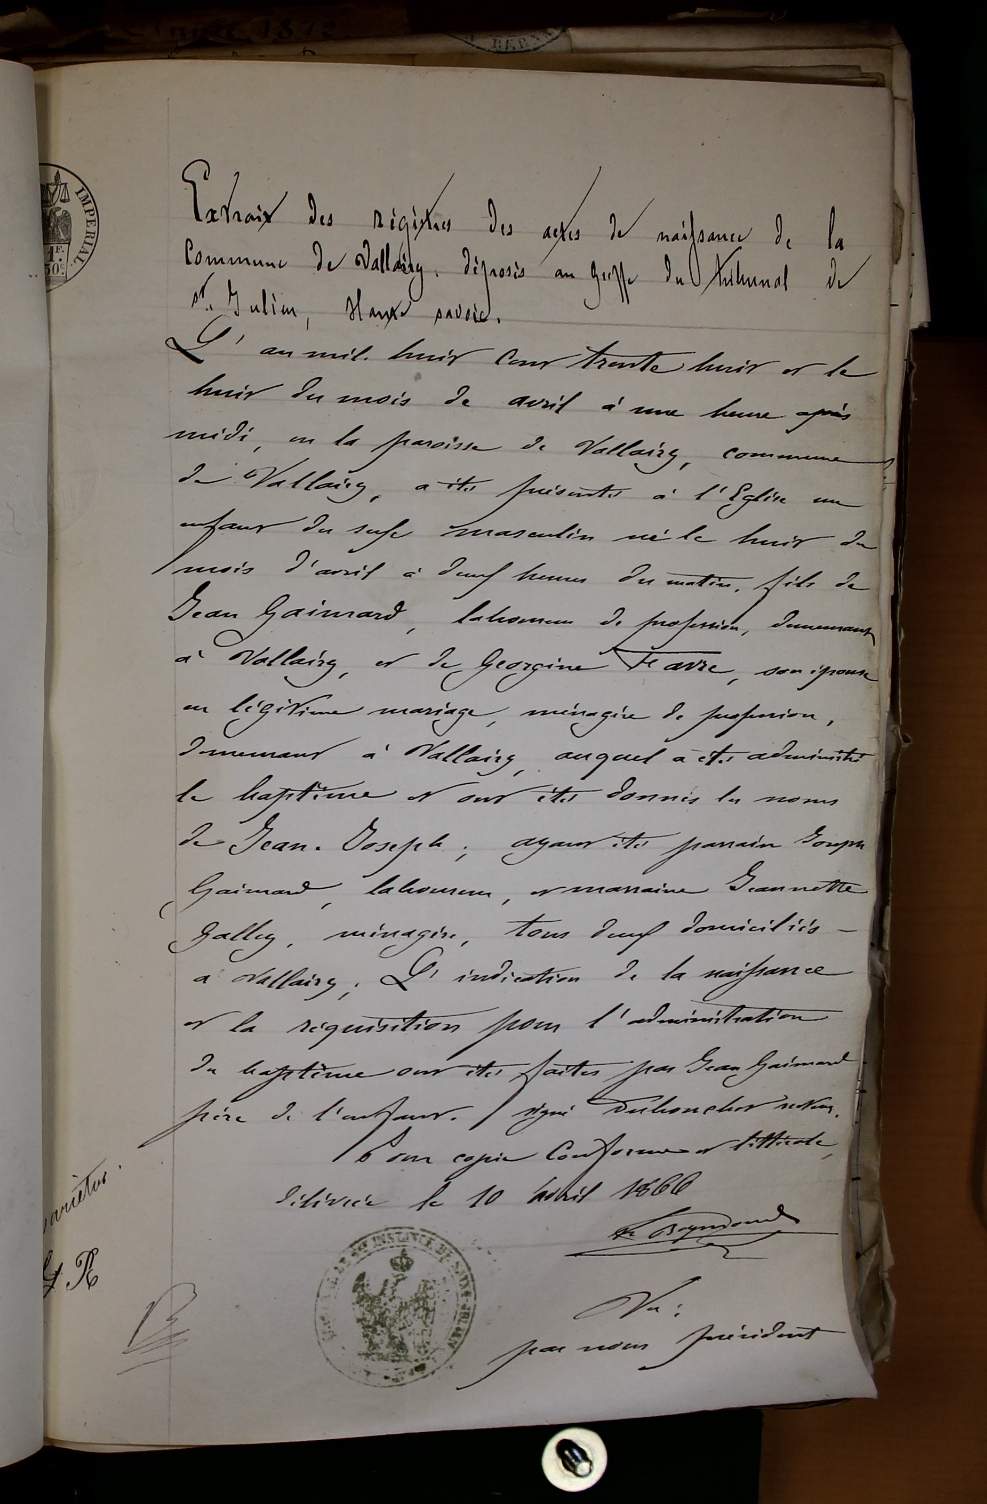 BERN
IMPERIAL.
1F.
50c
Extrait des régistres des actes de naissance de la
Commune de Valleiry. déposés au greffe du tribunal de
St. Julien, Haute savoie.
L'an mil. huit cent trente huit et le
huit du mois de avril à une heure après
midi, en la paroisse de Valleiry, commune
de Valleiry, a été présenté à l'Eglise un
enfant du sexe masculin né le huit du
mois d'avril à deux heures du matin, fils de
Jean Gaimard, laboureur de profession, demeurant
à Valleiry, et de Georgine Favre, son épouse
en légitime mariage, ménagère de profession,
demeurant à Valleiry, auquel a été administré
le baptême et ont étés donnés les noms
de Jean-Joseph; ayant été parrain Joseph
Gaimard, laboureur, et marraine Jeannette
Galley, ménagère, tous deux domiciliés
à Valleiry; L'indication de la naissance
et la réquisition pour l'administration
du baptême ont étés faites par Jean Gaimard
père de l'enfant. / signé Duboucher recteur.
Pour copie Conforme et littérale,
délivrée le 10 Avril 1866
Vu:
par nous président